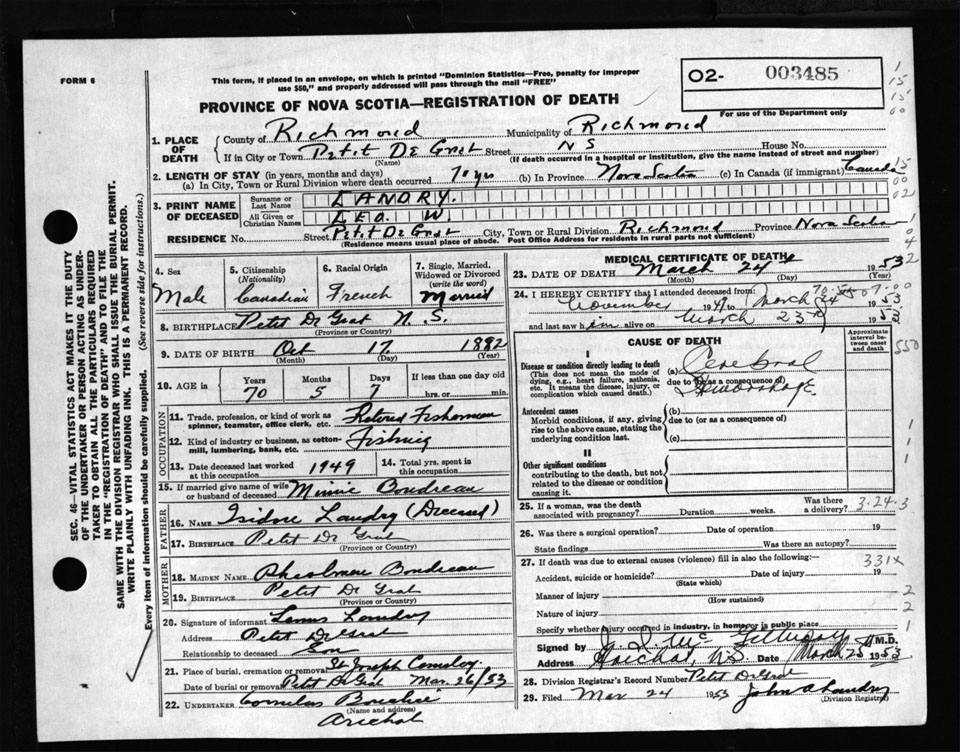 FORM 6
This form, if placed in an envelope, on which is printed "Dominion Statistics—Free, penalty for improper
use $50," and properly addressed will pass through the mail "FREE"
O2- 003485
For use of the Department only
PROVINCE OF NOVA SCOTIA—REGISTRATION OF DEATH
1. PLACE OF DEATH County of Richmond Municipality of Richmond
If in City or Town Petit De Grat Street N S House No.
(Name) (If death occurred in a hospital or institution, give the name instead of street and number)
2. LENGTH OF STAY (in years, months and days)
(a) In City, Town or Rural Division where death occurred 70 yrs (b) In Province Nova Scotia (c) In Canada (if immigrant) Canada
3. PRINT NAME OF DECEASED Surname or Last Name LANDRY.
All Given or Christian Names LEO W.
RESIDENCE No. Street Petit De Grat City, Town or Rural Division Richmond Province Nova Scotia
(Residence means usual place of abode. Post Office Address for residents in rural parts not sufficient)
4. Sex Male
5. Citizenship (Nationality) Canadian
6. Racial Origin French
7. Single, Married, Widowed or Divorced (write the word) Married
8. BIRTHPLACE Petit De Grat N. S.
(Province or Country)
9. DATE OF BIRTH Oct 17 1882
(Month) (Day) (Year)
10. AGE Years 70 Months 5 Days 7 If less than one day old hrs. or min.
OCCUPATION
11. Trade, profession, or kind of work as spinner, teamster, office clerk, etc. Retired Fisherman
12. Kind of industry or business, as cotton-mill, lumbering, bank, etc. Fishing
13. Date deceased last worked at this occupation 1949 14. Total yrs. spent in this occupation
15. If married give name of wife or husband of deceased Minnie Boudreau
FATHER
16. Name Isidore Landry (Deceased)
17. Birthplace Petit De Grat
(Province or Country)
MOTHER
18. MAIDEN NAME Boudreau
19. BIRTHPLACE Petit De Grat
(Province or Country)
20. Signature of informant Landry
Address Petit De Grat
Relationship to deceased Son
21. Place of burial, cremation or removal St Joseph
Date of burial or removal Petit De Grat Mar. 26/53
22. UNDERTAKER Cornelius
(Name and address)
Arichat
MEDICAL CERTIFICATE OF DEATH
23. DATE OF DEATH March 24 1953
(Month) (Day)
24. I HEREBY CERTIFY that I attended deceased from:
November 19 to March 24 1953
and last saw him alive on March 23 1953
CAUSE OF DEATH
Approximate interval between onset and death
I
Disease or condition directly leading to death (a) Cerebral
(This does not mean the mode of dying, e.g., heart failure, asthenia, etc. It means the disease, injury, or complication which caused death.)
due to (or as a consequence of) Hemorrhage
Antecedent causes (b)
Morbid conditions, if any, giving rise to the above cause, stating the underlying condition last.
due to (or as a consequence of)
(c)
II
Other significant conditions
contributing to the death, but not related to the disease or condition causing it.
25. If a woman, was the death associated with pregnancy? Duration weeks. Was there a delivery? 3-24-3
26. Was there a surgical operation? Date of operation 19
State findings Was there an autopsy?
27. If death was due to external causes (violence) fill in also the following: 331x
Accident, suicide or homicide? Date of injury 19
(State which)
Manner of injury
(How sustained)
Nature of injury
Specify whether injury occurred in industry, in home or in public place
Signed by M.D.
Address Arichat, N.S. Date March 25 1953
28. Division Registrar's Record Number Petit De Grat
29. Filed Mar 24 1953 John A Landry
(Division Registrar)
SEC. 46—VITAL STATISTICS ACT MAKES IT THE DUTY
OF THE UNDERTAKER OR PERSON ACTING AS UNDER-
TAKER TO OBTAIN ALL THE PARTICULARS REQUIRED
IN THE "REGISTRATION OF DEATH" AND TO FILE THE
SAME WITH THE DIVISION REGISTRAR WHO SHALL ISSUE THE BURIAL PERMIT.
WRITE PLAINLY WITH UNFADING INK. THIS IS A PERMANENT RECORD.
Every item of information should be carefully supplied. (See reverse side for instructions.)